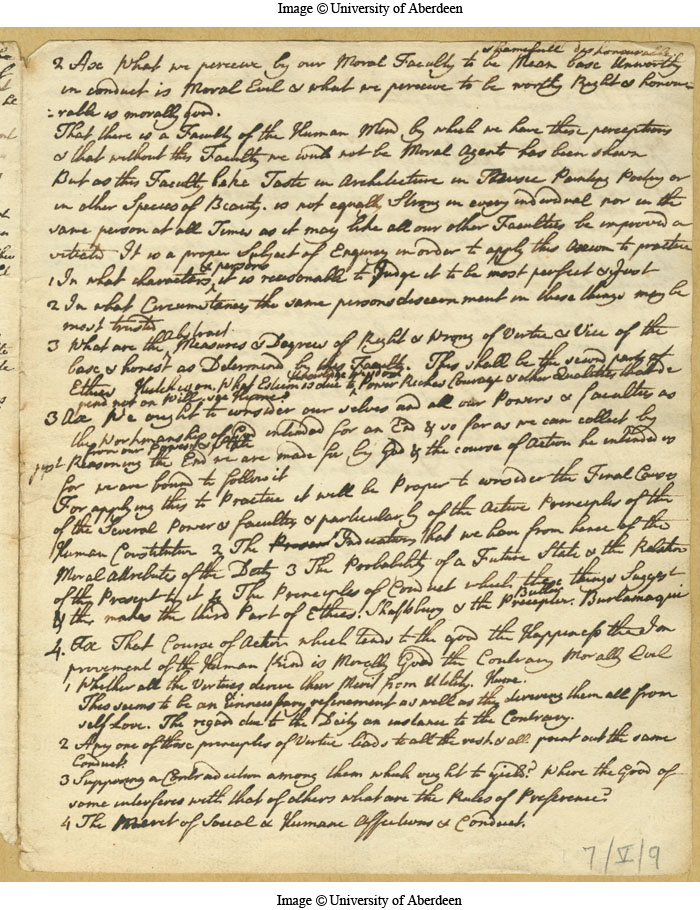 Image © University of Aberdeen
shamefull dishonourable
2 Ax What we perceive by our Moral Faculty to be Mean base Unworthy
in conduct is Moral Evil & what we perceive to be worthy Right & honou-
-rable is morally good.
That there is a Faculty of the Human Mind by which we have these perceptions
& that without this Faculty we could not be Moral Agents has been shown
But as this Faculty like Taste in Architecture in Musick Painting Poetry or
in other Species of Beauty. is not equally Strong in every individual nor in the
same person at all Times as it may like all our other Faculties be improved or
vitiated It is a proper Subject of Enquiry in order to apply this Axiom to practice
& persons
1 In what characters it is reasonable to Judge it to be most perfect & Just
2 In what Circumstances the same persons discernment in these things may be
most trusted
abstract
3 What are the Measures & Degrees of Right & Wrong of Virtue & Vice of the
base & honest as Determind by this Faculty. This shall be the second part of
Ethics Hutcheson. What Esteem is due to Power Riches Courage & other Qualities that de
pend not on Will, vide Hume?
3 Ax We ought to consider our selves and all our Powers & faculties as
the Workmanship of God intended for an End & so far as we can collect by
from our Powers &
just Reasoning the End we are made for by God & the course of Action he intended us
for we are bound to follow it
For applying this to Practice it will be Proper to consider the Final Causes
of the Several Powers & faculties & particularly of the Active Principles of the
Human Constitution 2 The Indications that we have from hence of the
Moral Attributes of the Deity 3 The Probability of a Future State & the Relation
of the Present to it 4 The Principles of Conduct which these things Suggest
Butler
& this makes the third Part of Ethics. Shaftsbury & the Preceptor. Burlamaqui
4. Ax That Course of Action which tends to the good the Happiness the Im
provement of the Human Kind is Morally Good the Contrary Morally Evil
1 Whether all the Virtues derive their Merit from Utility. Hume.
This seems to be an unnecessary refinement as well as the deriving them all from
self Love. The regard due to the Deity an instance to the Contrary.
2 Any one of those principles of Virtue leads to all the rest & all point out the same
Conduct.
3 Supposing a Contradiction among them which ought to yield? Where the Good of
some interferes with that of others what are the Rules of Preference?
4 The Merit of Social & Humane Affections & Conduct.
7/V/9
Image © University of Aberdeen